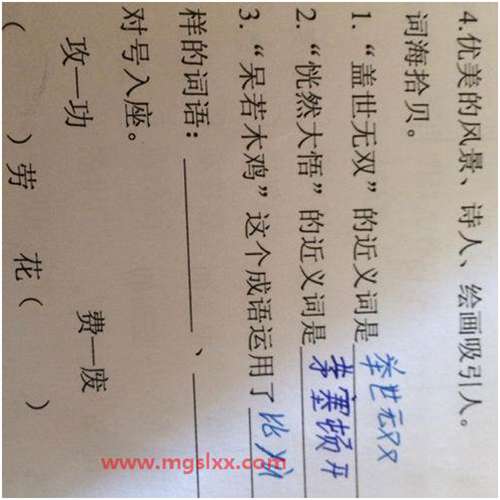 4.优美的风景、诗人、绘画吸引人。
词海拾贝。
1.“盖世无双”的近义词是举世无双
2.“恍然大悟”的近义词是茅塞顿开
3.“呆若木鸡”这个成语运用了比
样的词语：、
对号入座。
攻—功 费—废
( )劳 花( )
www.mgslxx.com